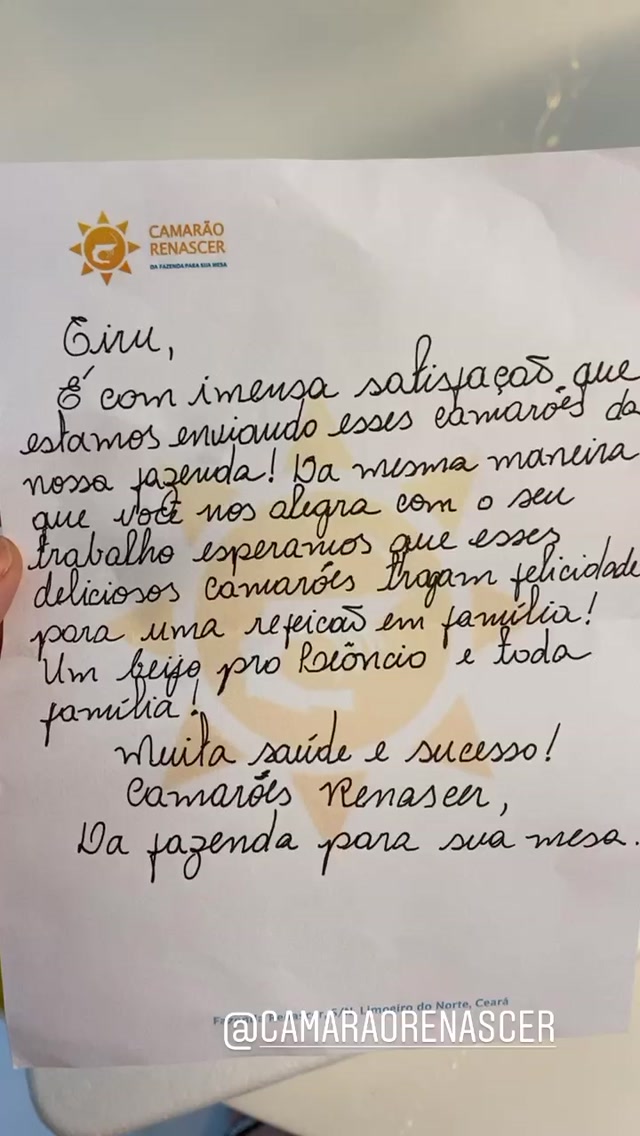 CAMARÃO
RENASCER
DA FAZENDA PARA SUA MESA
Giru,
É com imensa satisfação que
estamos enviando esses camarões da
nossa fazenda! Da mesma maneira
que você nos alegra com o seu
trabalho esperamos que esses
deliciosos camarões tragam felicidade
para uma refeicão em família!
Um beijo pro Leôncio e toda
família!
Muita saúde e sucesso!
Camarões Renascer,
Da fazenda para sua mesa.
Fazenda Renascer, S/N, Limoeiro do Norte, Ceará
@CAMARAORENASCER